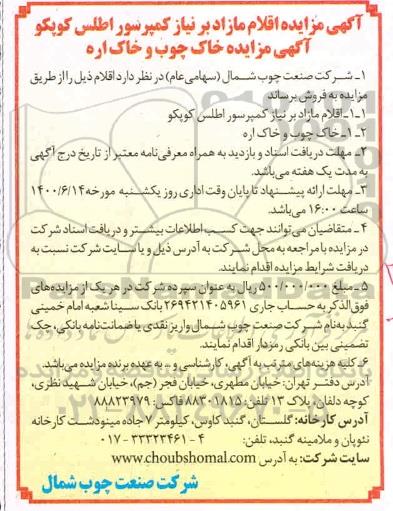 آگهی مزایده اقلام مازاد بر نیاز کمپرسور اطلس کوپکو
آگهی مزایده خاک چوب و خاک اره
۱ـ شرکت صنعت چوب شمال (سهامی عام) در نظر دارد اقلام ذیل را از طریق
مزایده به فروش برساند
۱ـ۱ـ اقلام مازاد بر نیاز کمپرسور اطلس کوپکو
۲ـ۱ـ خاک چوب و خاک اره
۲ـ مهلت دریافت اسناد و بازدید به همراه معرفی‌نامه معتبر از تاریخ درج آگهی
به مدت یک هفته می‌باشد.
۳ـ مهلت ارائه پیشنهاد تا پایان وقت اداری روز یکشنبه مورخه ۱۴۰۰/۶/۱۴
ساعت ۱۶:۰۰ می‌باشد.
۴ـ متقاضیان می‌توانند جهت کسب اطلاعات بیشتر و دریافت اسناد شرکت
در مزایده با مراجعه به محل شرکت به آدرس ذیل و یا سایت شرکت نسبت به
دریافت شرایط مزایده اقدام نمایند.
۵ـ مبلغ ۵۰۰/۰۰۰/۰۰۰ ریال به عنوان سپرده شرکت در هر یک از مزایده‌های
فوق‌الذکر به حساب جاری ۲۶۹۴۲۱۴۰۵۹۶۱ بانک سینا شعبه امام خمینی
گنبد به نام شرکت صنعت چوب شمال واریز نقدی یا ضمانت‌نامه بانکی، چک
تضمینی بین بانکی رمزدار اقدام نمایند.
۶ـ کلیه هزینه‌های مترتب به آگهی، کارشناسی و... به عهده برنده مزایده می‌باشد.
آدرس دفتر تهران: خیابان مطهری، خیابان فجر (جم)، خیابان شهید نظری،
کوچه دلفان، پلاک ۱۳ تلفن: ۸۸۳۰۱۸۱۵ فاکس: ۸۸۸۲۳۹۷۹
آدرس کارخانه: گلستان، گنبد کاوس، کیلومتر ۷ جاده مینودشت کارخانه
نئوپان و ملامینه گنبد، تلفن: ۴ - ۳۳۳۲۳۴۶۱ - ۰۱۷
سایت شرکت: به آدرس www.choubshomal.com
شرکت صنعت چوب شمال